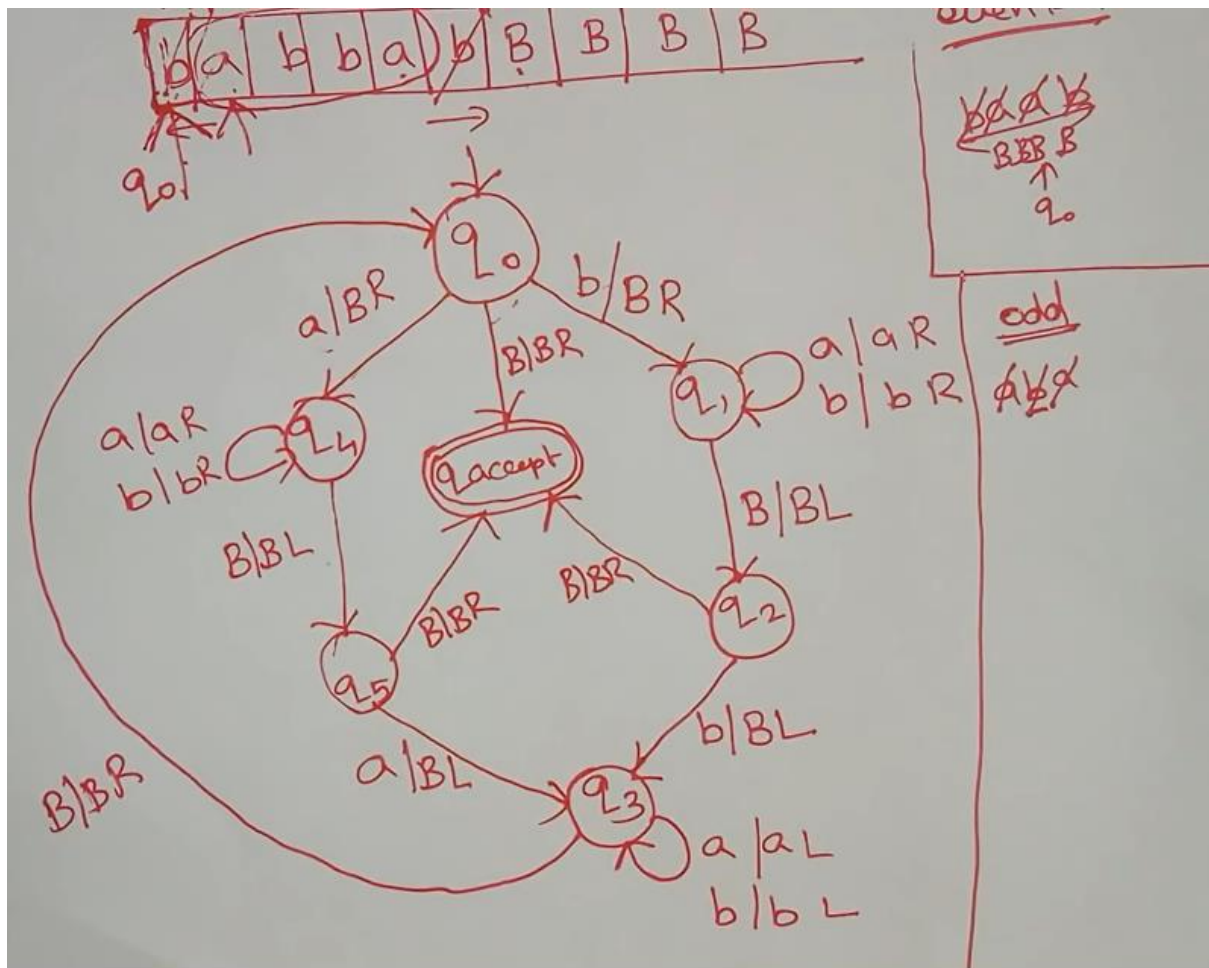 b a b b a b B B B B
q₀
q₀
b a a b
B B B B
q₀
a|BR
b/BR
B|BR
odd
a b a
q₁
a|aR
b|bR
q₄
a|aR
b|bR
q accept
B|BL
B|BL
B|BR
B|BR
q₂
q₅
b|BL
a|BL
q₃
B|BR
a|aL
b|bL